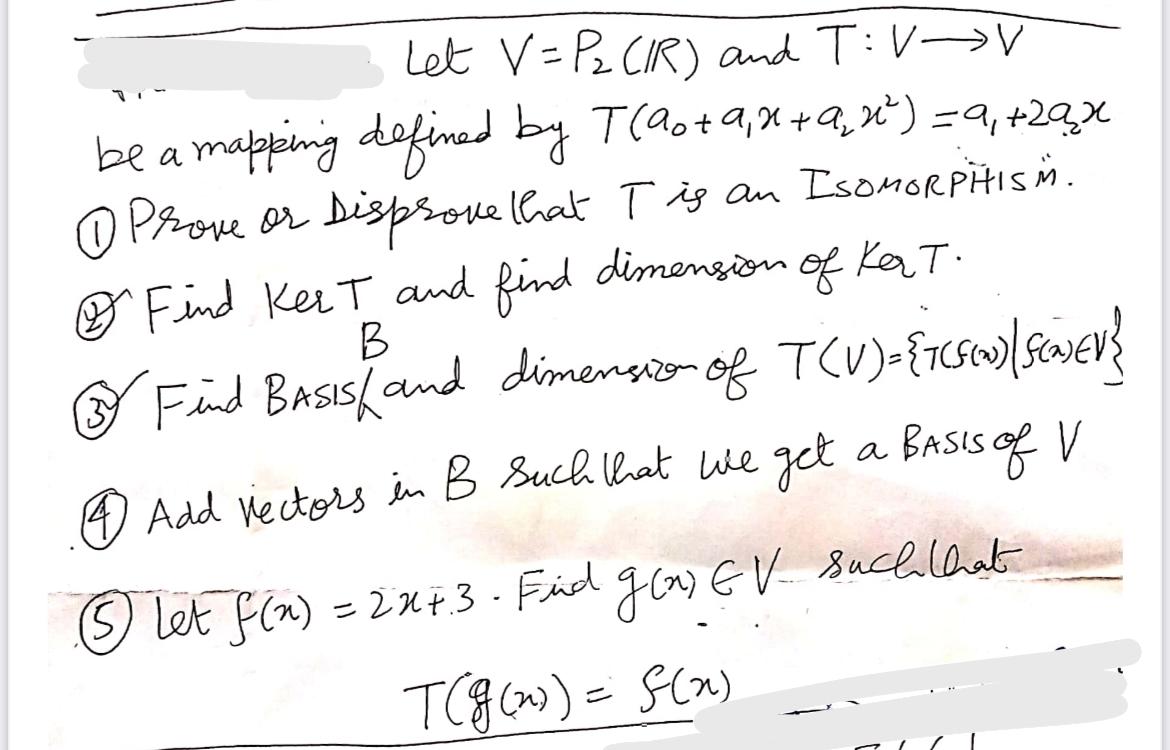 Let V = P₂ (IR) and T : V ⟶ V
be a mapping defined by T(a₀ + a₁x + a₂x²) = a₁ + 2a₂x
① Prove or Disprove that T is an ISOMORPHISM.
② Find Ker T and find dimension of Ker T.
B
③ Find BASIS and dimension of T(V) = {T(f(x)) | f(x) ∈ V}
④ Add vectors in B such that we get a BASIS of V
⑤ Let f(x) = 2x + 3. Find g(x) ∈ V such that
T(g(x)) = f(x)